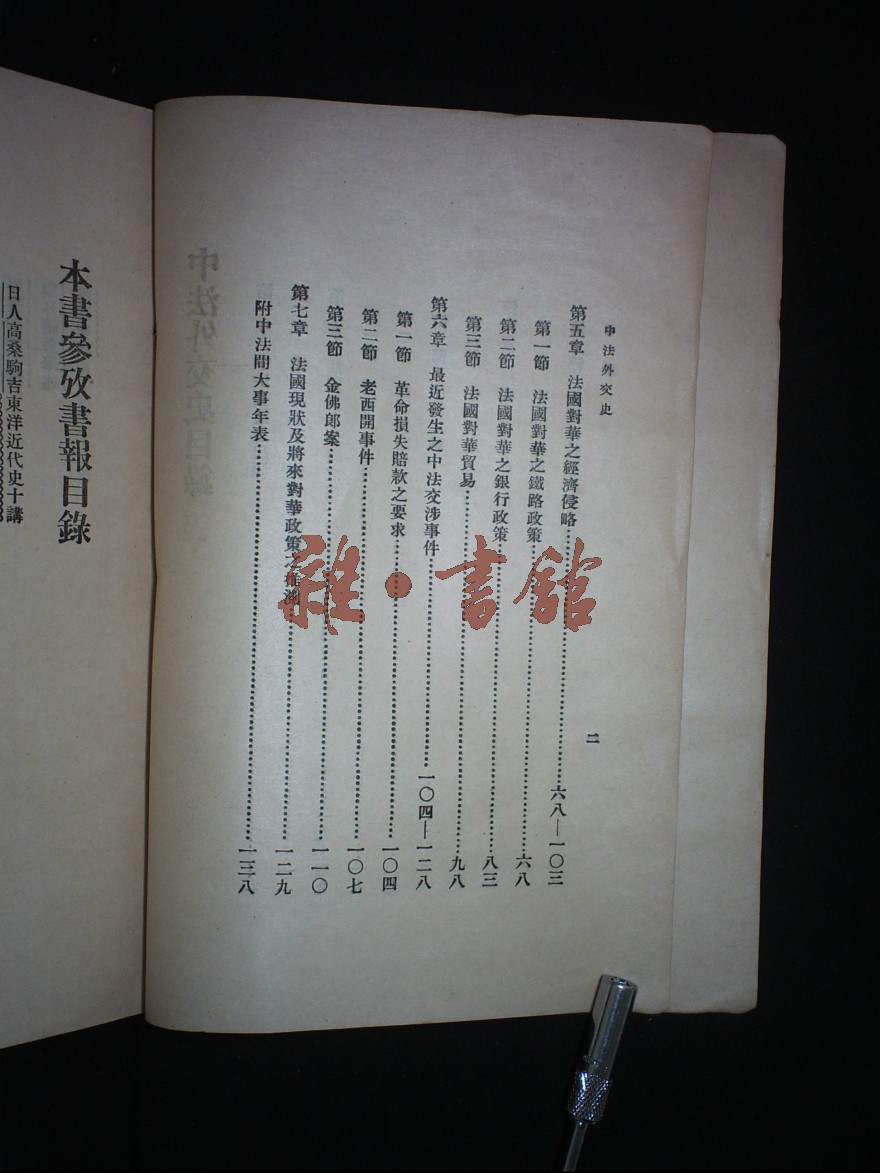 中法外交史
二
第五章　法國對華之經濟侵略……六八—一〇三
第一節　法國對華之鐵路政策……六八
第二節　法國對華之銀行政策……八三
第三節　法國對華貿易……九八
第六章　最近發生之中法交涉事件……一〇四—一二八
第一節　革命損失賠款之要求……一〇四
第二節　老西開事件……一〇七
第三節　金佛郎案……一一〇
第七章　法國現狀及將來對華政策之推測……一二九
附中法間大事年表……一三八
本書參攷書報目錄
日人高桑駒吉東洋近代史十講
雜·書館